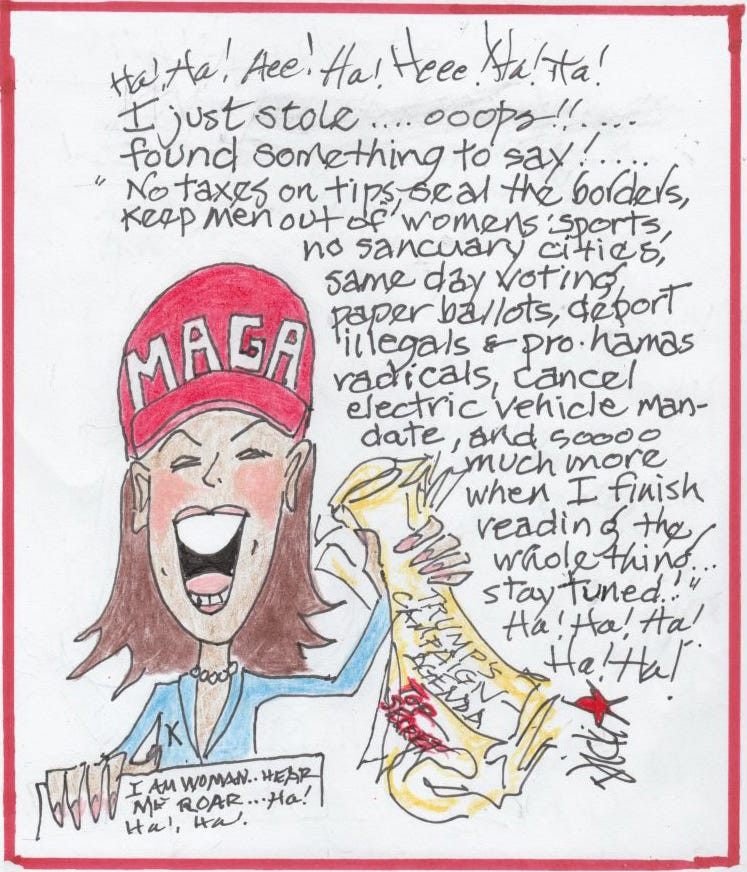 Ha! Ha! Aee! Ha! Heee! Ha! Ha!
I just stole .... ooops!!....
found something to say!....
"No taxes on tips, seal the borders,
Keep men out of womens sports,
no sancuary cities,
same day voting,
paper ballots, deport
illegals & pro-hamas
radicals, cancel
electric vehicle man-
date, and soooo
much more
when I finish
reading the
whole thing...
stay tuned!"
Ha! Ha! Ha!
Ha! Ha!
MAGA
TRUMP'S
CAMPAIGN
AGENDA
TOP
SECRET
K
I AM WOMAN.. HEAR
ME ROAR... Ha!
Ha! Ha!